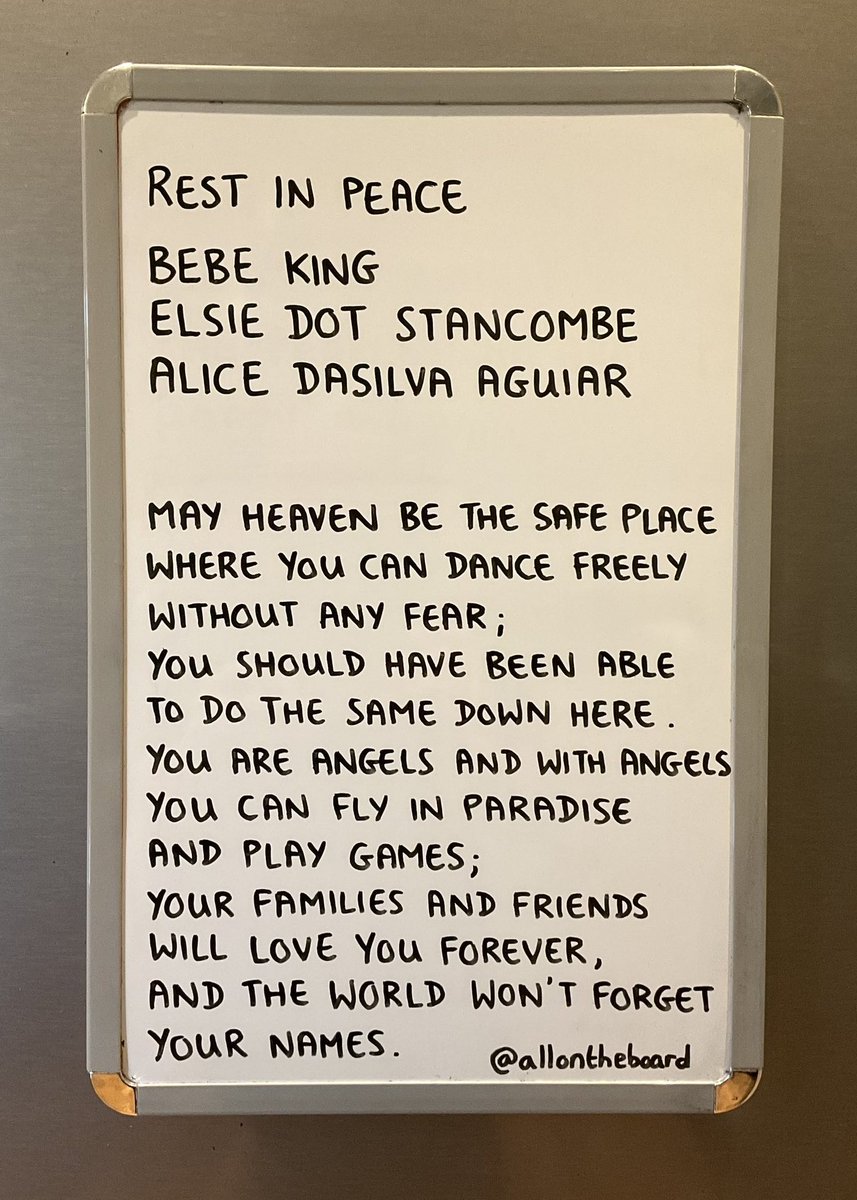 REST IN PEACE
BEBE KING
ELSIE DOT STANCOMBE
ALICE DASILVA AGUIAR
MAY HEAVEN BE THE SAFE PLACE
WHERE YOU CAN DANCE FREELY
WITHOUT ANY FEAR;
YOU SHOULD HAVE BEEN ABLE
TO DO THE SAME DOWN HERE.
YOU ARE ANGELS AND WITH ANGELS
YOU CAN FLY IN PARADISE
AND PLAY GAMES;
YOUR FAMILIES AND FRIENDS
WILL LOVE YOU FOREVER,
AND THE WORLD WON'T FORGET
YOUR NAMES.
@allontheboard